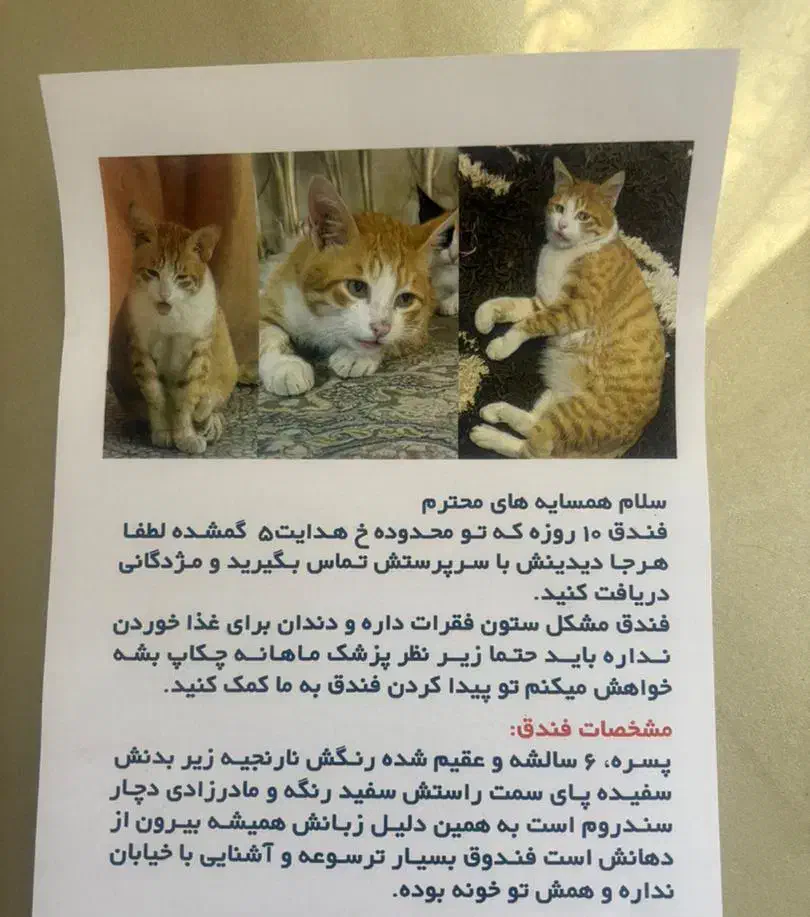 سلام همسایه های محترم
فندق ۱۰ روزه که تو محدوده خ هدایت۵ گمشده لطفا
هرجا دیدینش با سرپرستش تماس بگیرید و مژدگانی
دریافت کنید.
فندق مشکل ستون فقرات داره و دندان برای غذا خوردن
نداره باید حتما زیر نظر پزشک ماهانه چکاپ بشه
خواهش میکنم تو پیدا کردن فندق به ما کمک کنید.
مشخصات فندق:
پسره، ۶ سالشه و عقیم شده رنگش نارنجیه زیر بدنش
سفیده پای سمت راستش سفید رنگه و مادرزادی دچار
سندروم است به همین دلیل زبانش همیشه بیرون از
دهانش است فندوق بسیار ترسوعه و آشنایی با خیابان
نداره و همش تو خونه بوده.